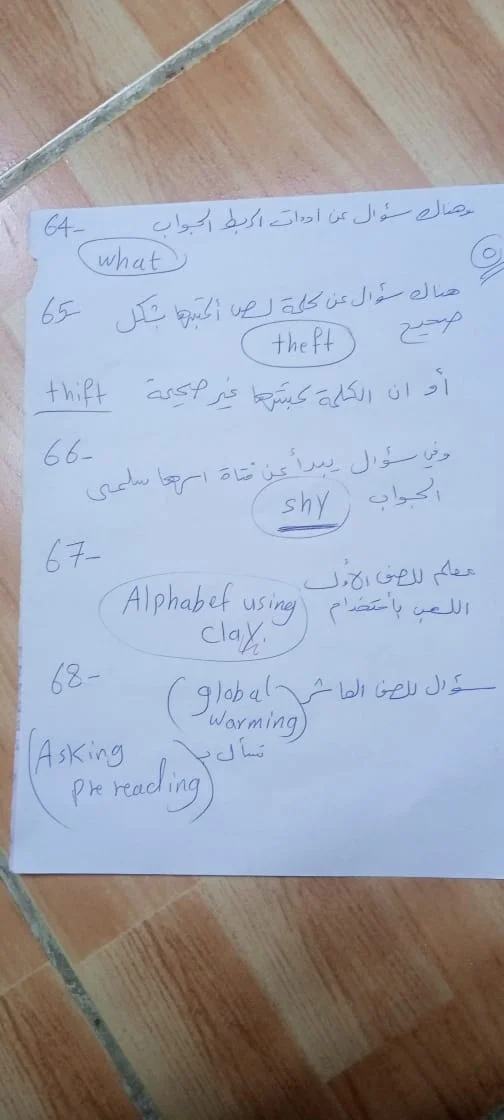 64- وهناك سؤال عن ادوات الربط الجواب
what
٥
65- هناك سؤال عن كلمة لص أكتبها بشكل
صحيح
theft
أو ان الكلمة كتبتها غير صحيحة thift
66- وفي سؤال يبدأ عن فتاة اسمها سلمى
الجواب shy
67-
معلم للصف الأول
اللعب بأستخدام Alphabet using
clay.
68- سؤال للصف العاشر (global
warming)
تسأل بـ (Asking
pre reading)